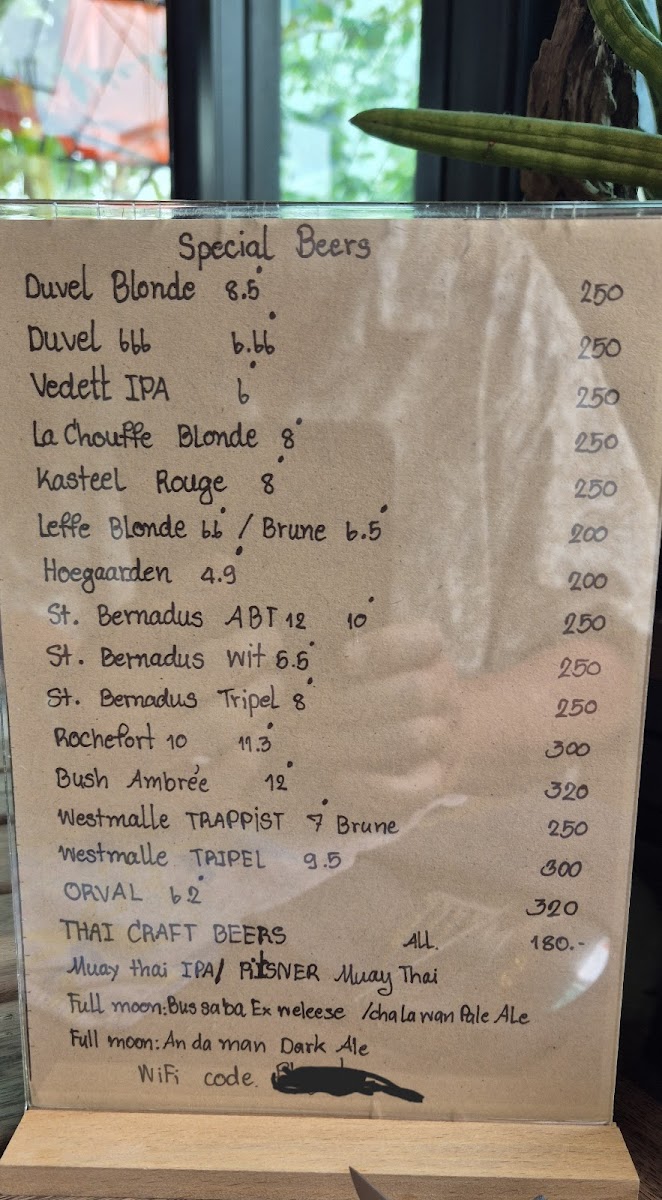 Special Beers
Duvel Blonde 8.5° 250
Duvel 666 6.66° 250
Vedett IPA 6° 250
La Chouffe Blonde 8° 250
Kasteel Rouge 8° 250
Leffe Blonde 66° / Brune 6.5° 200
Hoegaarden 4.9° 200
St. Bernadus ABT 12 10° 250
St. Bernadus Wit 5.5° 250
St. Bernadus Tripel 8° 250
Rochefort 10 11.3° 300
Bush Ambrée 12° 320
Westmalle TRAPPiST 7° Brune 250
Westmalle TRIPEL 9.5 300
ORVAL 6 2° 320
THAI CRAFT BEERS ALL. 180.-
Muay thai IPA/ PiLSNER Muay Thai
Full moon: Bussaba Ex weleese /chalawan Pale Ale
Full moon: An da man Dark Ale
WiFi code.